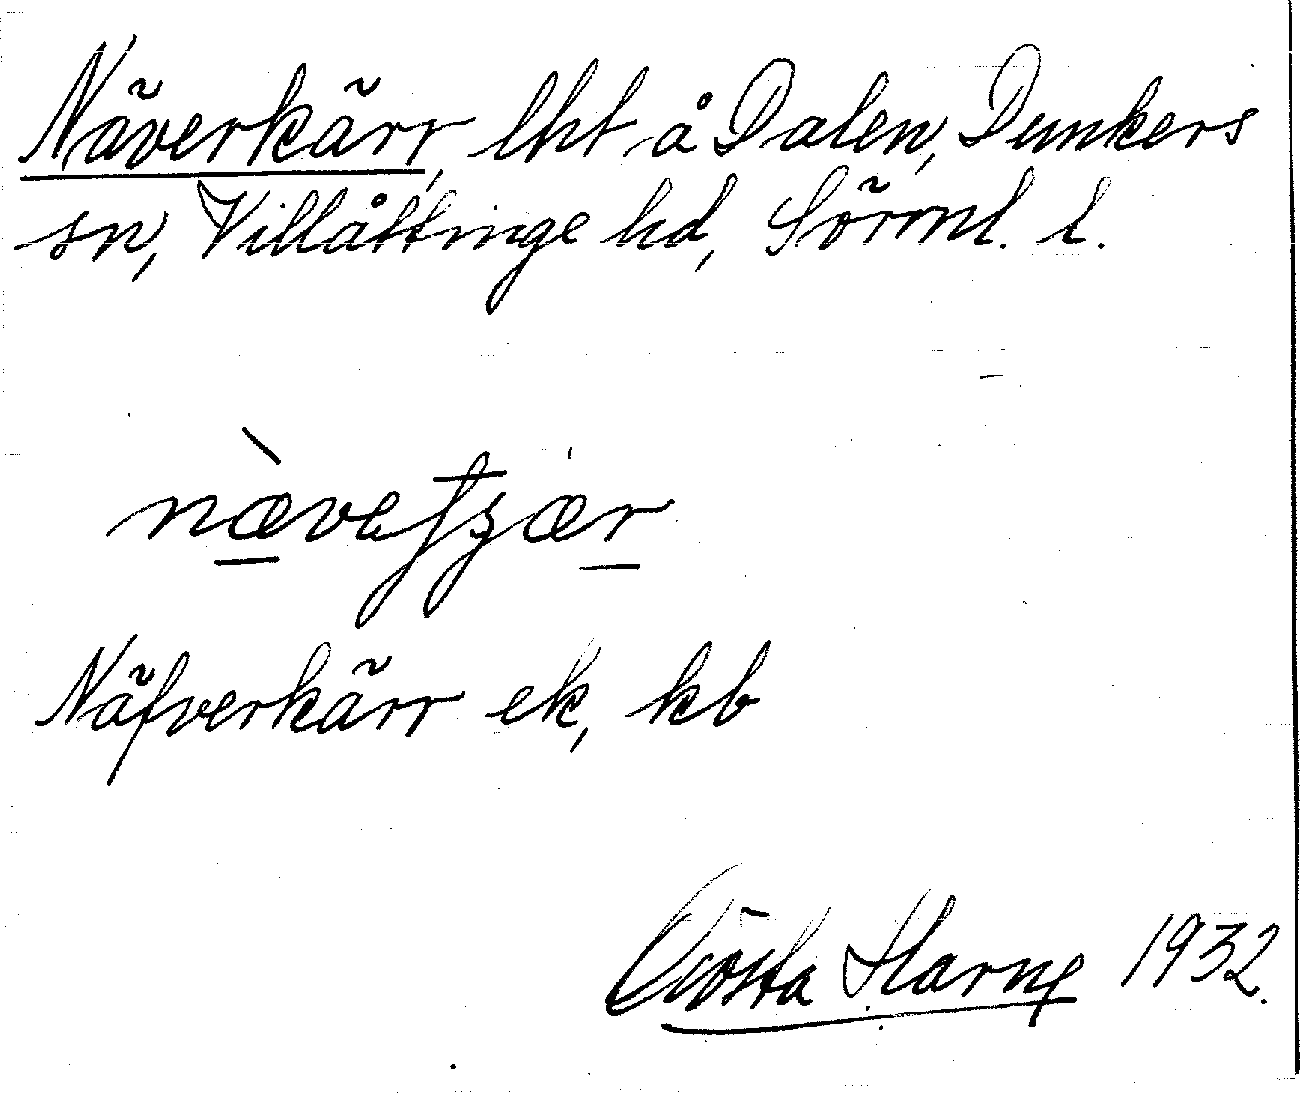 Näverkärr, lht å Dalen, Dunkers
sn, Villåttinge hd, Sörml. l.
Näfverkärr ek, kb
Gösta 1932.